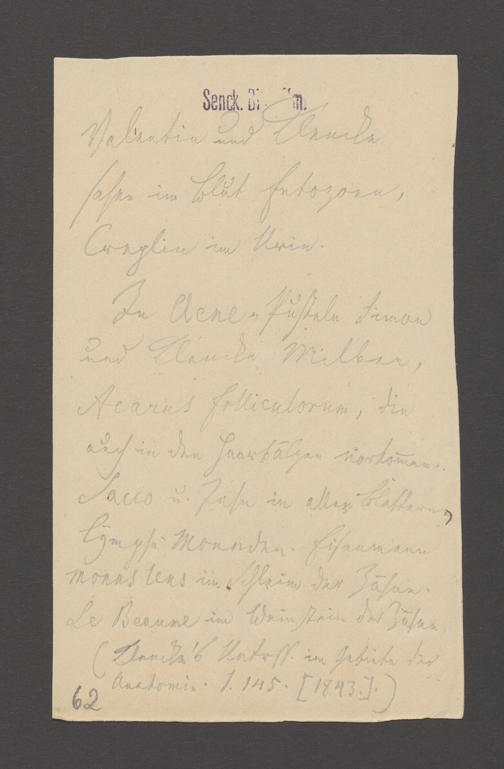 Senck. Bi m.
Valentin und Klencke
sahen im Blut Entozoen,
Creplin im Urin.
In Acne-Pusteln Simon
und Klencke Milben,
Acarus folliculorum, die
auch in den Haarbälgen vorkommen.
Sacco u. in allen Blattern,
Lymph-Monaden. Eisenmann
monas lens im Schleim der Zähne.
Le Beaume im Weinstein der Zähne.
(Klencke's Unters. im Gebiete der
Anatomie. S. 145. [1843.].)
62